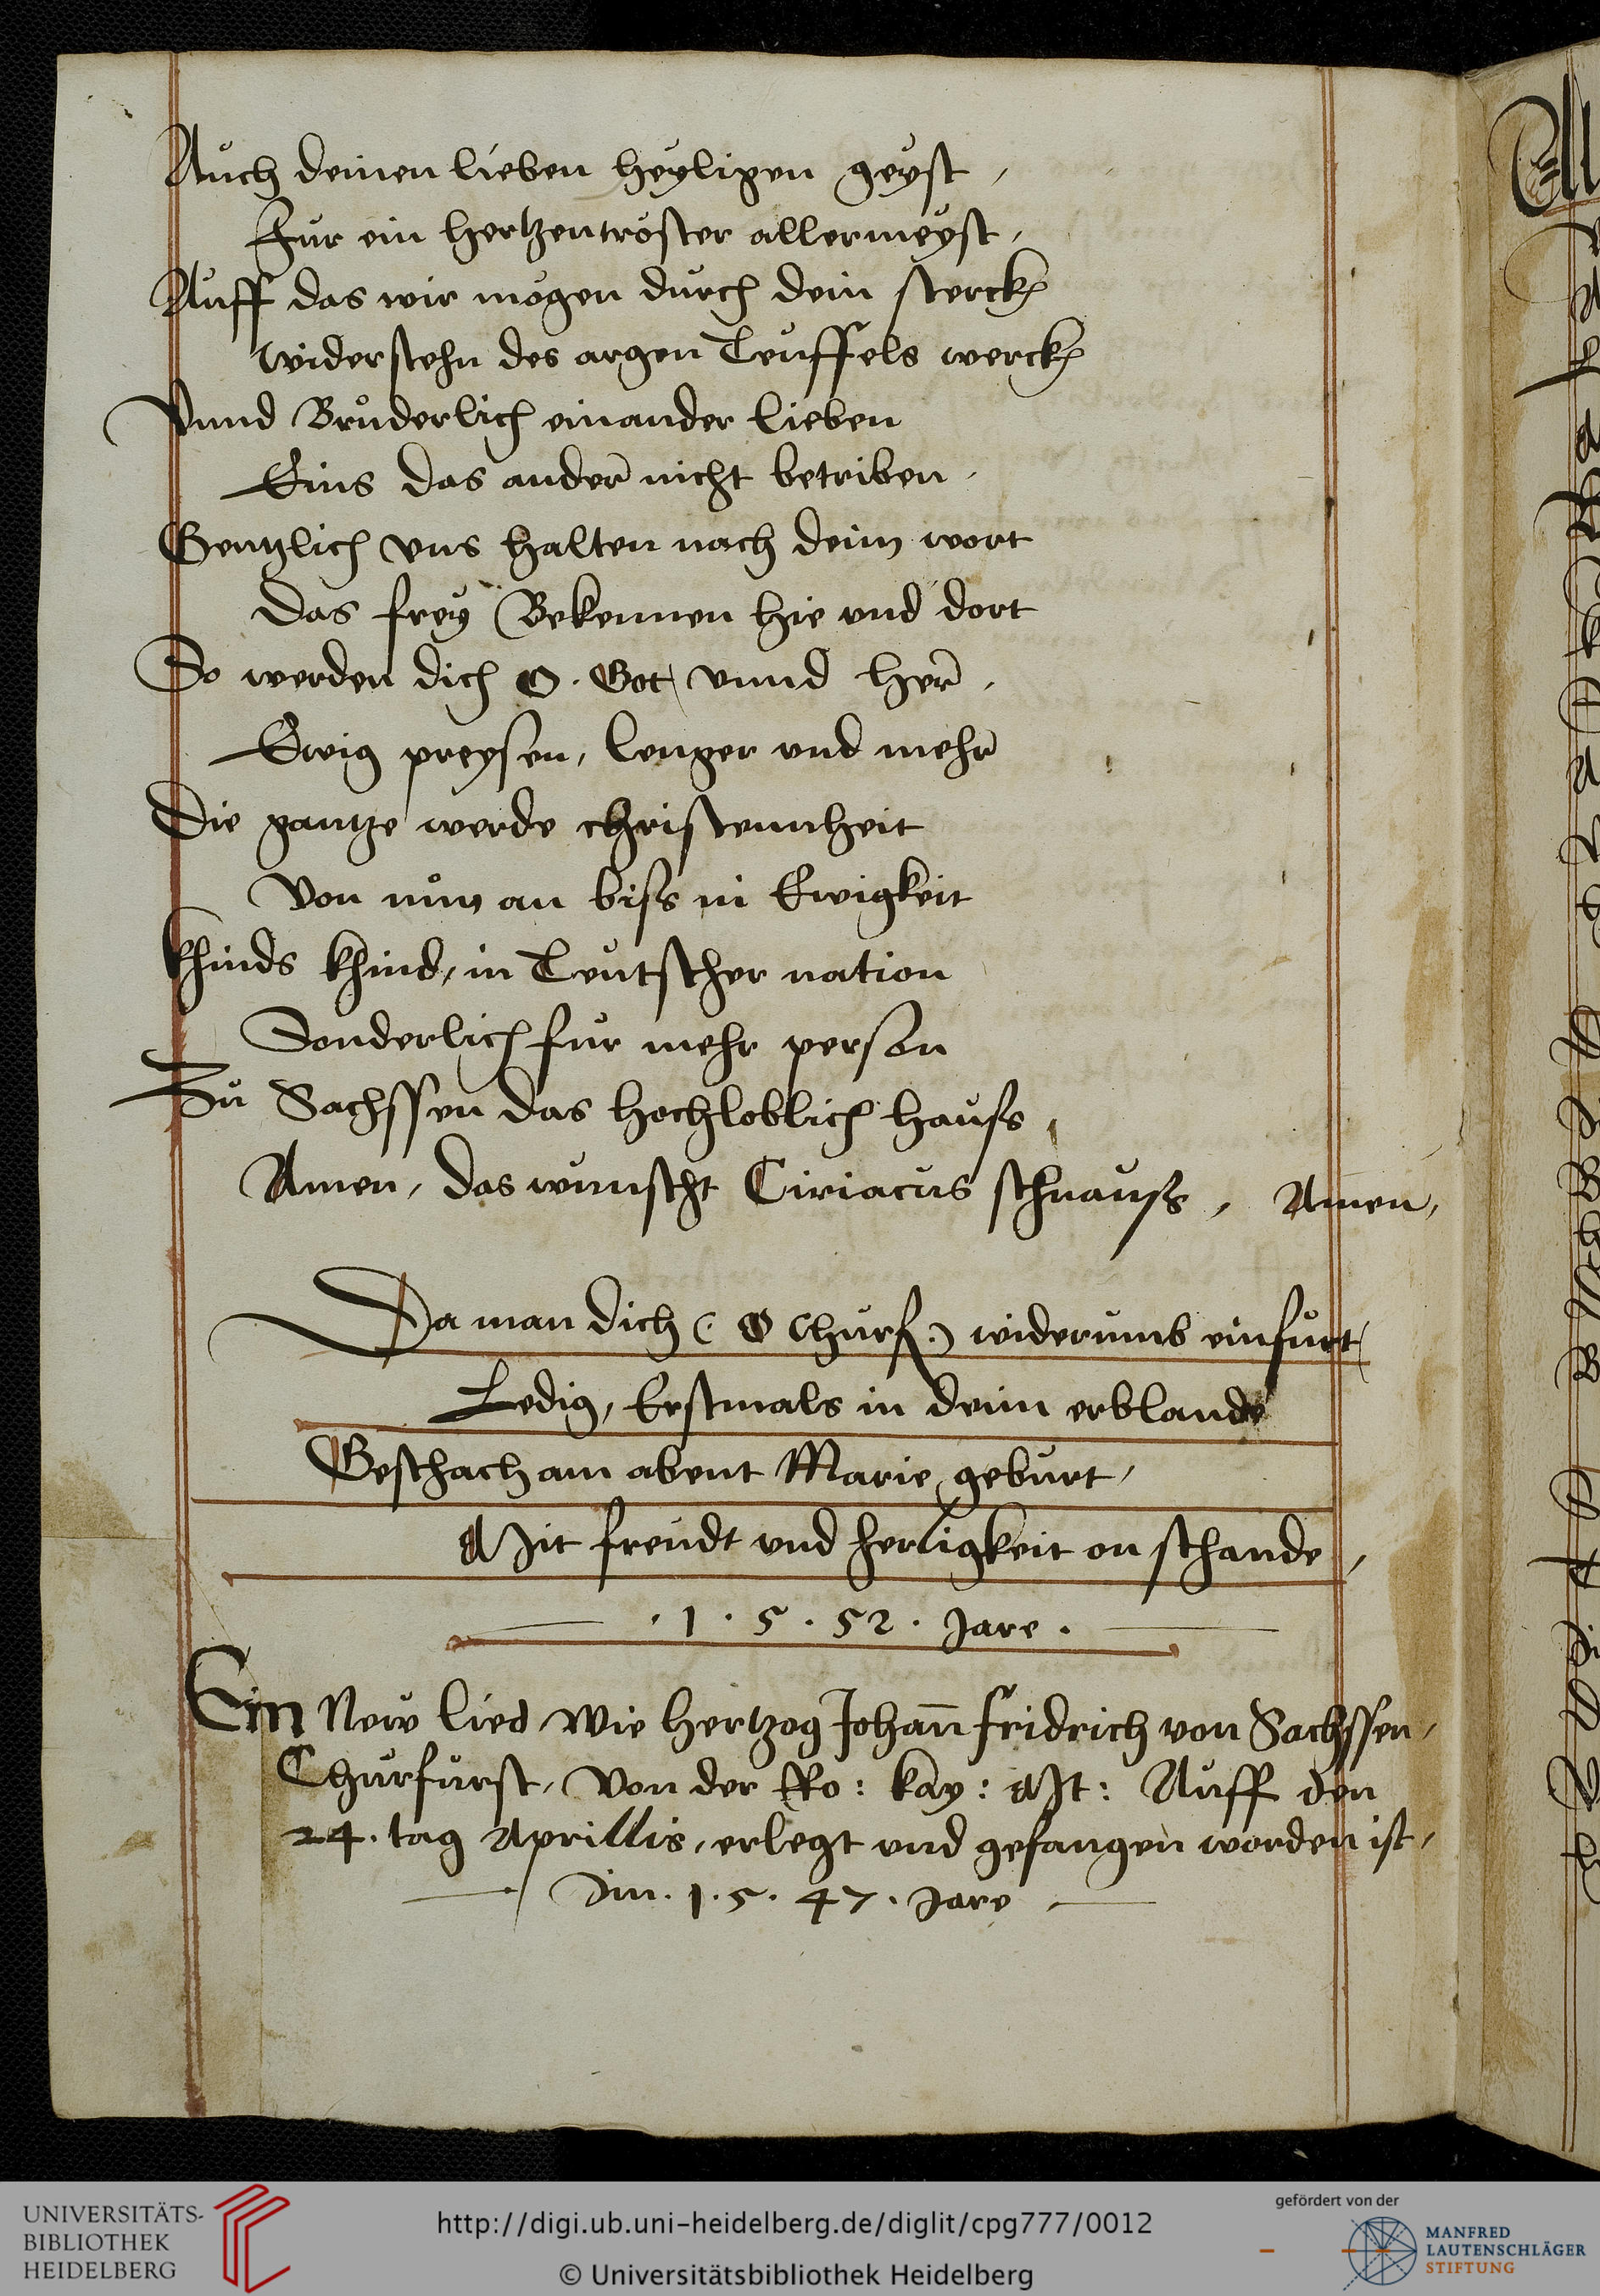 Auch deinen lieben heyligen geyst,
Fur ein hertzentröster allermeyst,
Auff das wir mögen durch dein sterck
Widerstehn des argen Teuffels werck
Vnnd Brüderlich einander lieben
Eins das ander nicht betriben,
Gentzlich vns halten nach deim wort
Das frey Bekennen hie vnd dort
So werden dich O. Got vnnd her,
Ewig preysen, lenger vnd mehr
Die gantze werde christennheit
Von nun an biss in Ewigkeit
Khinds khind, in Teutscher nation
Sonderlich fur mehr person
Zu Sachssen das hochloblich hauss,
Amen, das wunscht Ciriacus schnauss, Amen,
Da man dich (O Churf:) widerumb einfurt
Ledig, Erstmals in deim erblande
Geschach am abent Marie geburt,
Mit freudt vnd herligkeit on schande,
. 1 . 5 . 52 . Jare .
Ein New lied Wie hertzog Johan̄ fridrich von Sachssen,
Churfurst, Von der Ro: kay: Mt: Auff den
24. tag Aprillis, erlegt vnd gefangen worden ist,
Im . 1 . 5 . 47 . Jare
UNIVERSITÄTS-
BIBLIOTHEK
HEIDELBERG
http://digi.ub.uni-heidelberg.de/diglit/cpg777/0012
© Universitätsbibliothek Heidelberg
gefördert von der
MANFRED
LAUTENSCHLÄGER
STIFTUNG